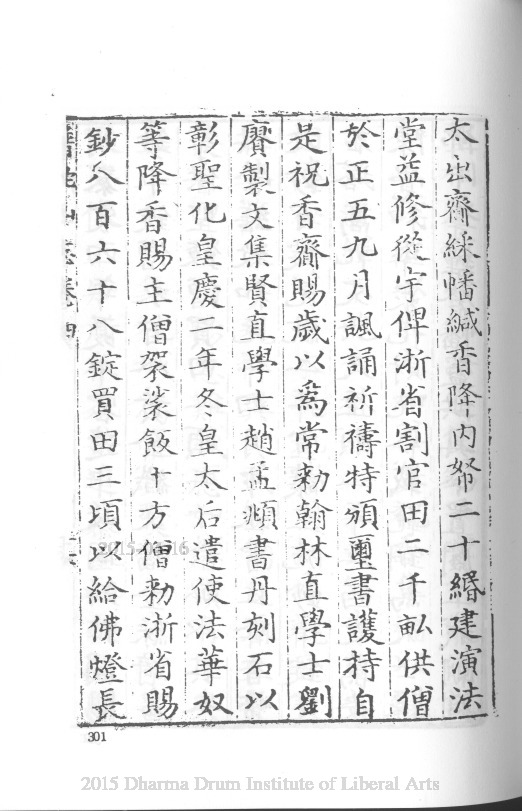 太出齋綵幡緘香降內帑二十緡建演法
堂益修從宇俾浙省割官田二千畝供僧
於正五九月諷誦祈禱特頒璽書護持自
是祝香齋賜歲以為常勑翰林直學士劉
賡製文集賢直學士趙孟頫書丹刻石以
彰聖化皇慶二年冬皇太后遣使法華奴
等降香賜主僧袈裟飯十方僧勑浙省賜
鈔八百六十八錠買田三頃以給佛燈長
301
2015 Dharma Drum Institute of Liberal Arts